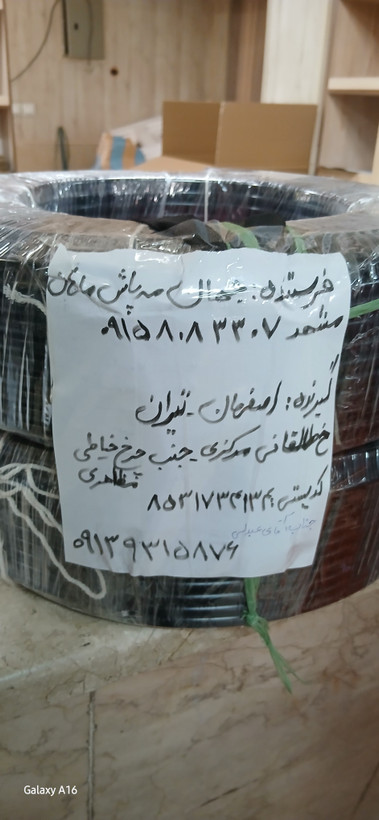 فرستنده: جمالی مهپاش ماهان
مشهد ۰۹۱۵۸۰۸۳۳۰۷
گیرنده: اصفهان - تیران
خ طالقانی مرکزی جنب چرخ خیاطی
مظاهری
کدپستی ۸۵۳۱۷۳۴۱۳۴
جناب آقای
۰۹۱۳۹۳۱۵۸۷۶
Galaxy A16